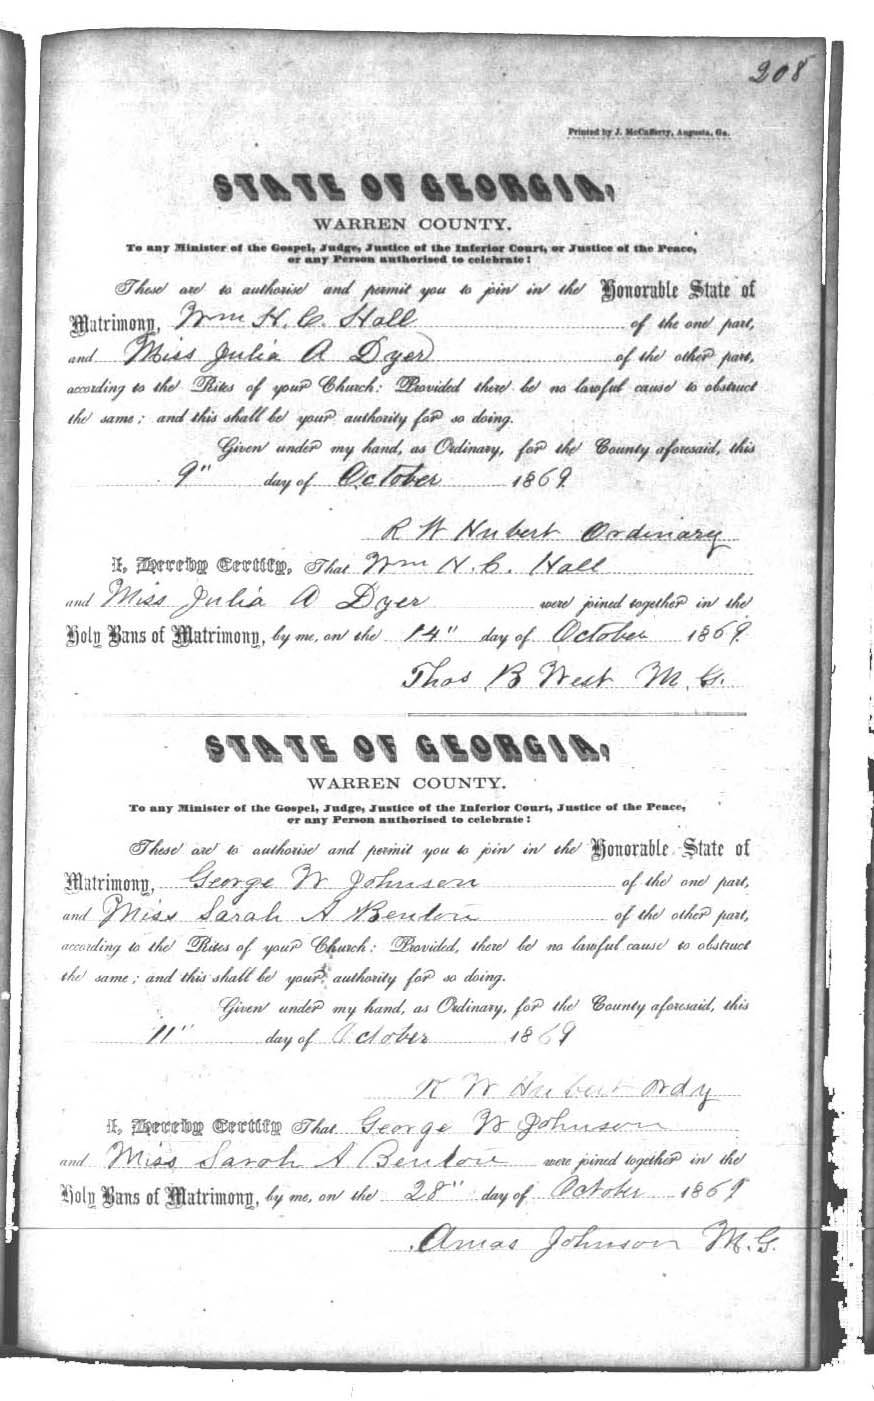 208
Printed by J. McCafferty, Augusta, Ga.
STATE OF GEORGIA,
WARREN COUNTY.
To any Minister of the Gospel, Judge, Justice of the Inferior Court, or Justice of the Peace,
or any Person authorised to celebrate:
These are to authorise and permit you to join in the Honorable State of
Matrimony, Wm H. C. Hall of the one part,
and Miss Julia A Dyer of the other part,
according to the Rites of your Church: Provided there be no lawful cause to obstruct
the same; and this shall be your authority for so doing.
Given under my hand, as Ordinary, for the County aforesaid, this
9" day of October 1869
R W Hubert Ordinary
I, Hereby Certify, That Wm H. C. Hall
and Miss Julia A Dyer were joined together in the
Holy Bans of Matrimony, by me, on the 14" day of October 1869
Thos B West M. G.
STATE OF GEORGIA,
WARREN COUNTY.
To any Minister of the Gospel, Judge, Justice of the Inferior Court, Justice of the Peace,
or any Person authorised to celebrate:
These are to authorise and permit you to join in the Honorable State of
Matrimony, George W Johnson of the one part,
and Miss Sarah A Benton of the other part,
according to the Rites of your Church: Provided, there be no lawful cause to obstruct
the same; and this shall be your authority for so doing.
Given under my hand, as Ordinary, for the County aforesaid, this
11" day of October 1869
R W Hubert Ordy
I, Hereby Certify That George W Johnson
and Miss Sarah A Benton were joined together in the
Holy Bans of Matrimony, by me, on the 28" day of October 1869
Amas Johnson M. G.